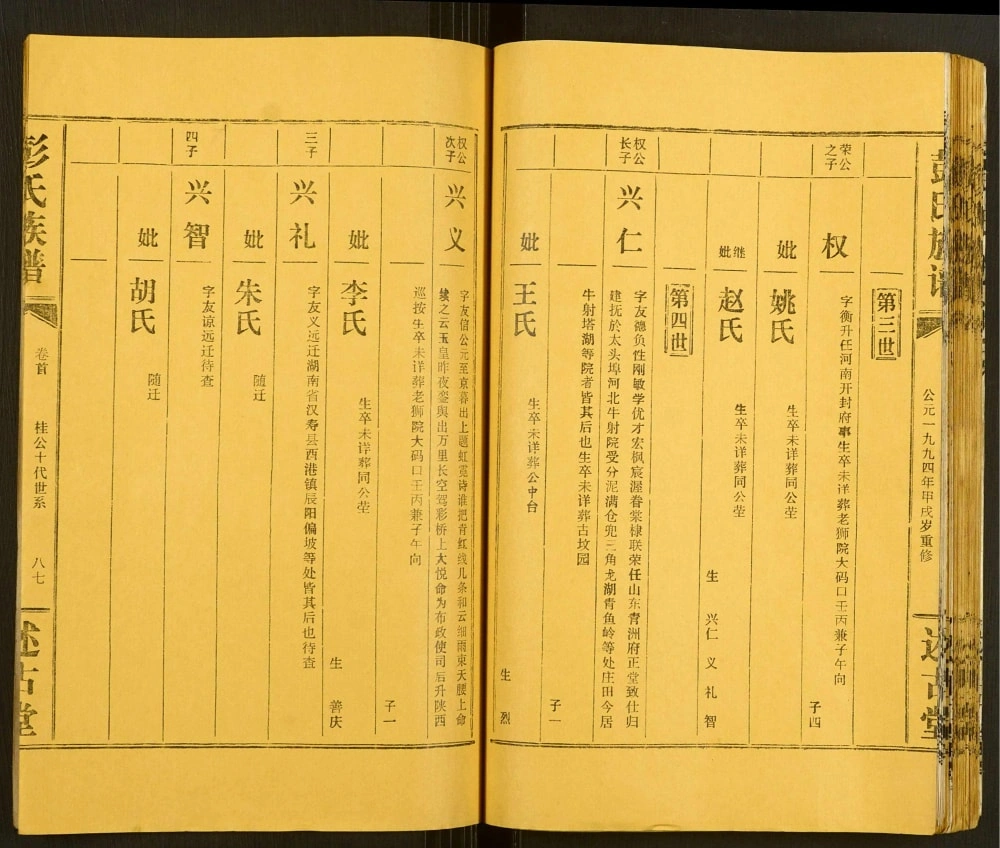 彭氏族谱
公元一九九四年甲戌岁重修
述古堂
第三世
荣公之子
权
字衡升任河南开封府事生卒未详葬老狮院大码口壬丙兼子午向
子四
妣
姚氏
生卒未详葬同公茔
继妣
赵氏
生卒未详葬同公茔
生 兴仁 义 礼 智
第四世
权公长子
兴仁
字友德负性刚敏学优才宏枫宸渥眷棠棣联荣任山东青洲府正堂致仕归
建抚於太头埠河北牛射院受分泥满仓兜三角龙湖青鱼岭等处庄田今居
牛射塔湖等院者皆其后也生卒未详葬古坟园
子一
妣
王氏
生卒未详葬公中台
生 烈
权公次子
兴义
字友信公元至京暮出上题虹霓诗谁把青红线几条和云细雨束天腰上命
续之云玉皇昨夜銮舆出万里长空驾彩桥上大悦命为布政使司后升陕西
巡按生卒未详葬老狮院大码口壬丙兼子午向
子一
妣
李氏
生卒未详葬同公茔
生 善庆
三子
兴礼
字友义远迁湖南省汉寿县西港镇辰阳偏坡等处皆其后也待查
妣
朱氏
随迁
四子
兴智
字友谅远迁待查
妣
胡氏
随迁
彭氏族谱
卷首
桂公十代世系
八七
述古堂